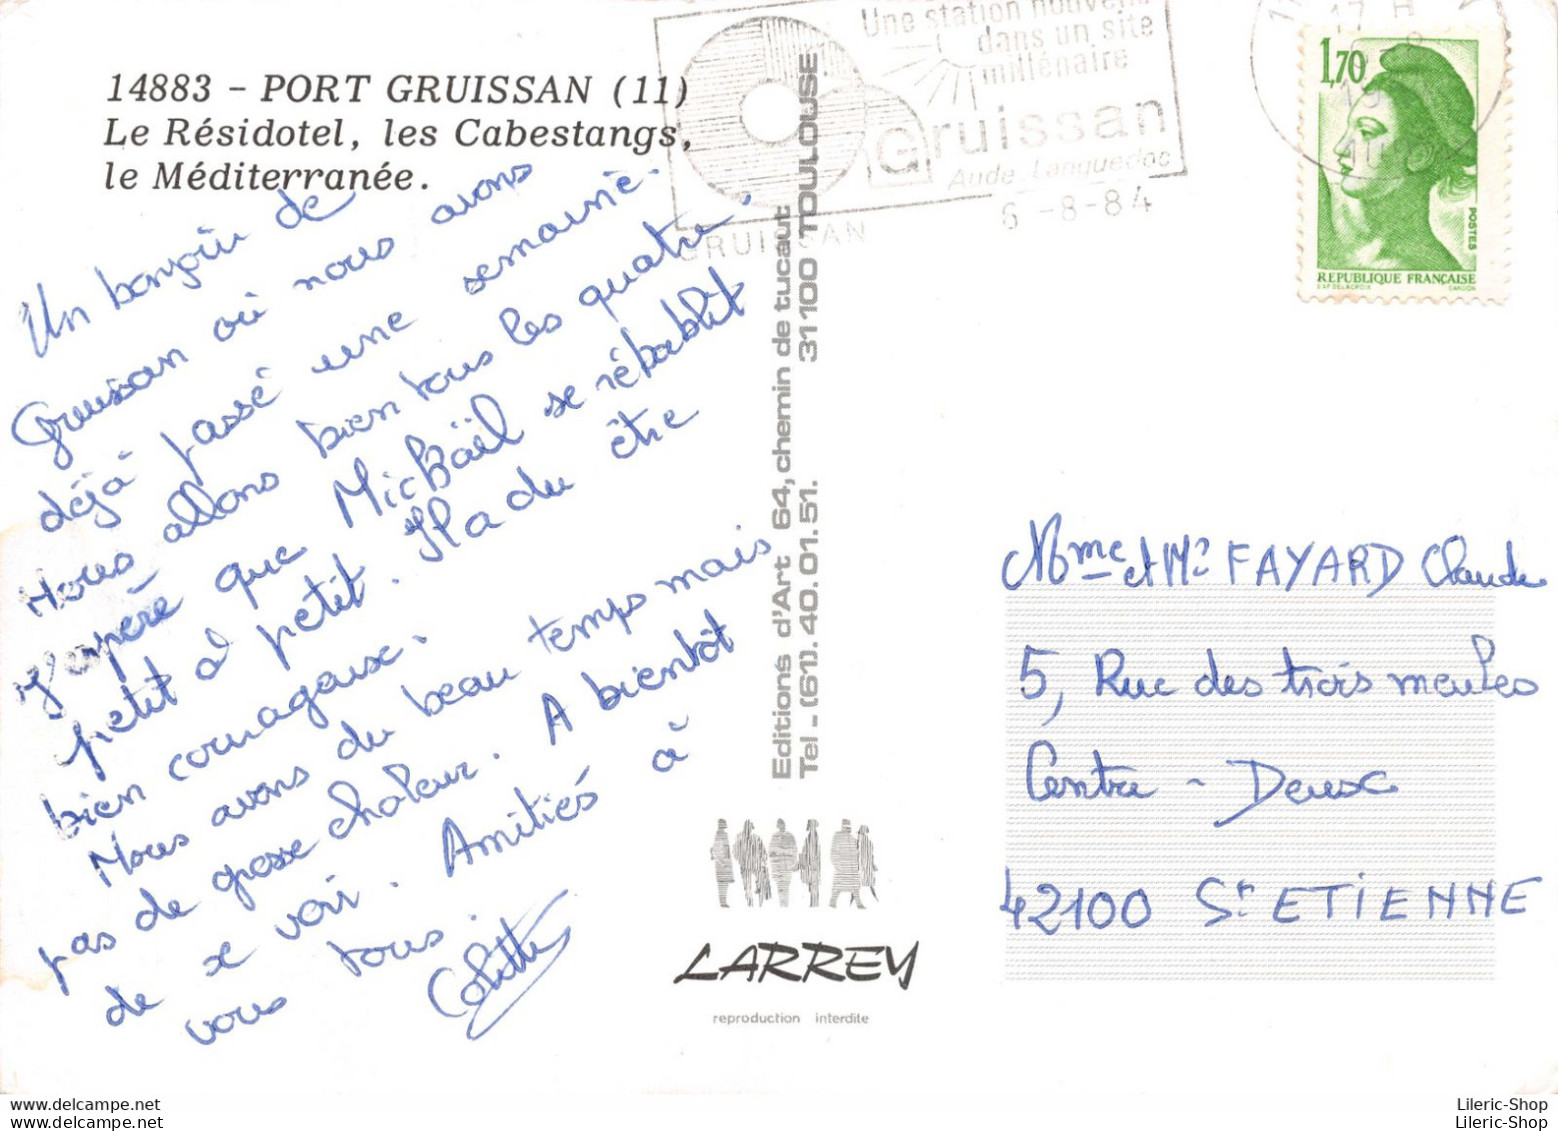 14883 - PORT GRUISSAN (11)
Le Résidotel, les Cabestangs,
le Méditerranée.
Un bonjour de
Gruissan où nous avons
déjà passé une semaine.
Nous allons bien tous les quatre.
J'espère que Mickaël se rétablit
petit à petit. Il a du être
bien courageux.
Nous avons du beau temps mais
pas de grosse chaleur. A bientôt
de se voir. Amitiés à
vous tous.
Colette
Editions d'Art 64, chemin de tucaut 31100 TOULOUSE
Tel - (61). 40. 01. 51.
LARREY
reproduction interdite
Une station nouvelle
dans un site
millénaire
Gruissan
Aude Languedoc
GRUISSAN
6 -8-84
17 H
1,70
POSTES
REPUBLIQUE FRANÇAISE
EXP DELACROIX
GANDON
Mme et Mr FAYARD Claude
5, Rue des trois meules
Centre - Deux
42100 St ETIENNE
www.delcampe.net
lileric-shop
Lileric-Shop
Lileric-Shop